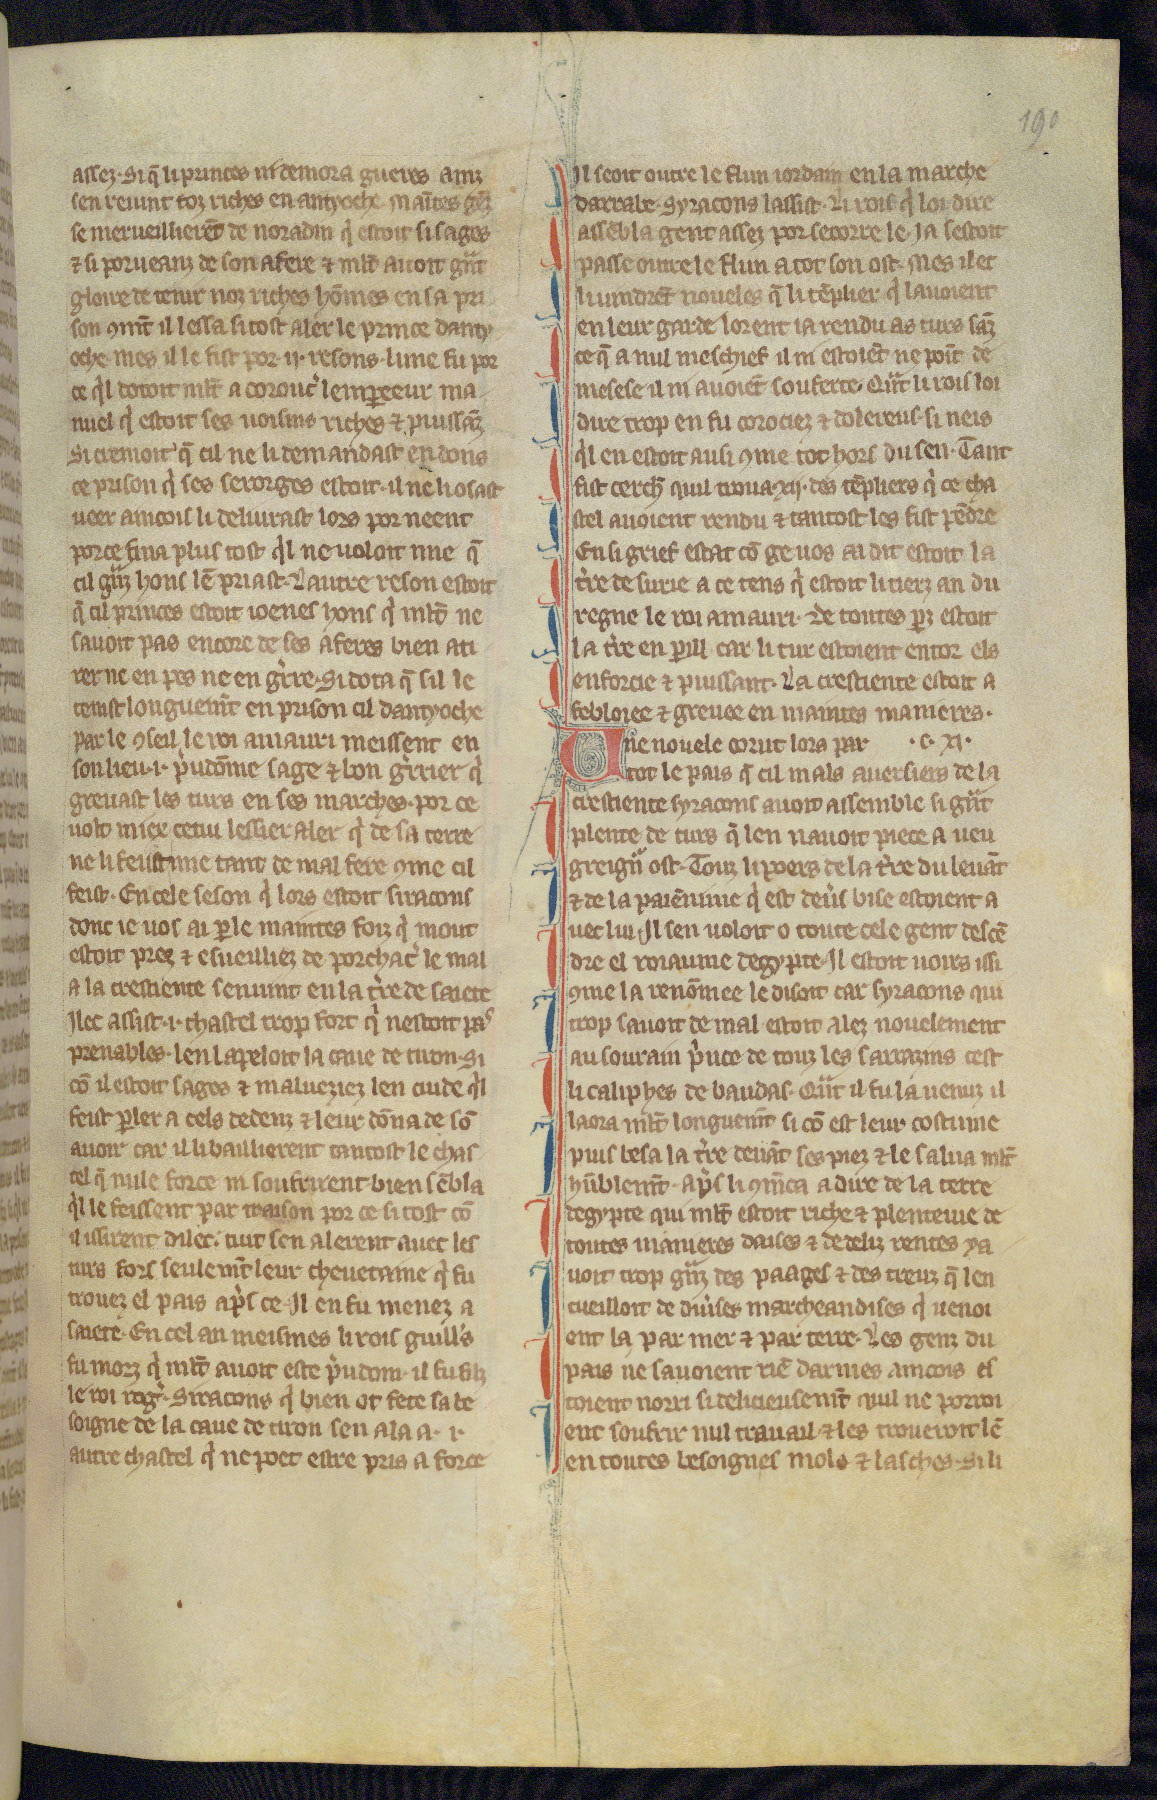 190
assez. Si q̄ li princes ni demora gueres ainz
sen reuint toz riches en antyoche. Maītes gēz
se merueillierēt de noradin q̇ estoit si sages
⁊ si porueanz de son afere ⁊ ml̄t auoit gn̄t
gloire de tenir noz riches hōmes en sa pri
son ꝯmt̄ il lessa si tost aler le prince danty
oche. mes il le fist por .ij. resons. lune fu por
ce q̇l dotoit ml̄t a coroucˀ lempereeur ma
nuel q̇ estoit ses uoisins riches ⁊ puissāz
Si cremoit q̄ cil ne li demandast en dons
ce prison q̇ ses serorges estoit. il ne li osast
ueer aincois li deliurast lors por neent
por ce fina plus tost q̇l ne uoloit mie q̄
cil gn̄z hons lē priast. Lautre reson estoit
q̄ cil princes estoit ioenes hons q̇ ml̄t ne
sauoit pas encore de ses aferes bien ati
rer ne en pes ne en gˀre. Si dota q̄ sil le
tenist longuemt̄ en prison cil dantyoche
par le ꝯseil le roi amauri meissent en
son lieu .i. pˀudōme sage ⁊ bon gˀrier q̇
greuast les turs en ses marches. por ce
uolt miex cetui lessier aler q̇ de sa terre
ne li feist mie tant de mal fere ꝯme cil
feist. En cele seson q̇ lors estoit siracons
donc ie uos ai ꝑle maintes foiz q̇ mout
estoit prez ⁊ esueilliez de porchacˀ le mal
a la crestiente senuint en la tˀre de saiete
Ilec assist .i. chastel trop fort q̇ nestoit pas
prenables. len lapeloit la caue de tiron. Si
cō il estoit sages ⁊ malueziez len cuide q̇l
feist ꝑler a cels dedenz ⁊ leur dōna de sō
auoir car il li baillierent tantost le chas
tel q̄ nule force ni soufrirent bien sēbla
q̇l le feissent par traison por ce si tost cō
il issirent dilec. tuit sen alerent auec les
turs fors seulemt̄ leur cheuetaine q̇ fu
trouez el pais apˀs ce. Il en fu menez a
saiete. En cel an meismes li rois guill's
fu morz q̇ ml̄t auoit este pˀudom. il fu filz
le roi rogˀ. Siracons q̇ bien ot fete sa be
soigne de la caue de tiron sen ala a .i.
autre chastel q̇ ne poet estre pris a force
Il seoit outre le flun iordain en la marche
darrabe. Syracons lassist. Li rois q̇ loi dire
assēbla gent assez por secorre le. Ia sestoit
passe outre le flun a tot son ost. Mes ilec
li uindrēt noueles q̄ li tēplier q̇ lauoient
en leur garde lorent ia rendu as turs sāz
ce q̄ a nul meschief il ni estoiēt ne poīt de
mesese il ni auoiēt souferte. Qn̄t li rois loi
dire trop en fu corociez ⁊ dolereus. si neis
q̇l en estoit ausi ꝯme tot hors du sen. Tant
fist cerchˀ quil troua .xij. des tēpliers q̇ ce cha
stel auoient rendu ⁊ tantost les fist pēdre
En si grief estat cō ge uos ai dit estoit la
tˀre de surie a ce tens q̇ estoit li tierz an du
regne le roi amauri. De toutes ꝑz estoit
la tˀre en ꝑill car li tur estoient entor els
enforcie ⁊ puissant. La crestiente estoit a
febloiee ⁊ greuee en maintes manieres.
Une nouele corut lors par .c. xj.
tot le pais q̄ cil mals auersiers de la
crestiente syracons auoit assemble si gn̄t
plente de turs q̄ len nauoit piece a ueu
greignˀ ost. Touz li poers de la tˀre du leuāt
⁊ de la paiennime q̇ est deuˀs bise estoient a
uec lui. Il sen uoloit o toute cele gent descē
dre el roiaume degypte. Il estoit uoirs issi
ꝯme la renōmee le disoit car syracons qui
trop sauoit de mal estoit alez nouelement
au sourain pˀnce de touz les sarrazins cest
li caliphes de baudas. Qn̄t il fu la uenuz il
laora ml̄t longuemt̄ si cō est leur costume
puis besa la tˀre deuāt ses piez ⁊ le salua ml̄t
hūblemt̄. Apˀs li ꝯm̄ca a dire de la terre
degypte qui ml̄t estoit riche ⁊ plenteiue de
toutes manieres daises ⁊ de deliz rentes ya
uoit trop gn̄z des paages ⁊ des treuz q̄ len
cueilloit de diuˀses marcheandises q̇ uenoi
ent la par mer ⁊ par terre. Les genz du
pais ne sauoient riē darmes aincois es
toient norri si delicieusemt̄ quil ne porroi
ent soufrir nul trauail ⁊ les troueroit lē
en toutes besoignes mols ⁊ lasches. Si li